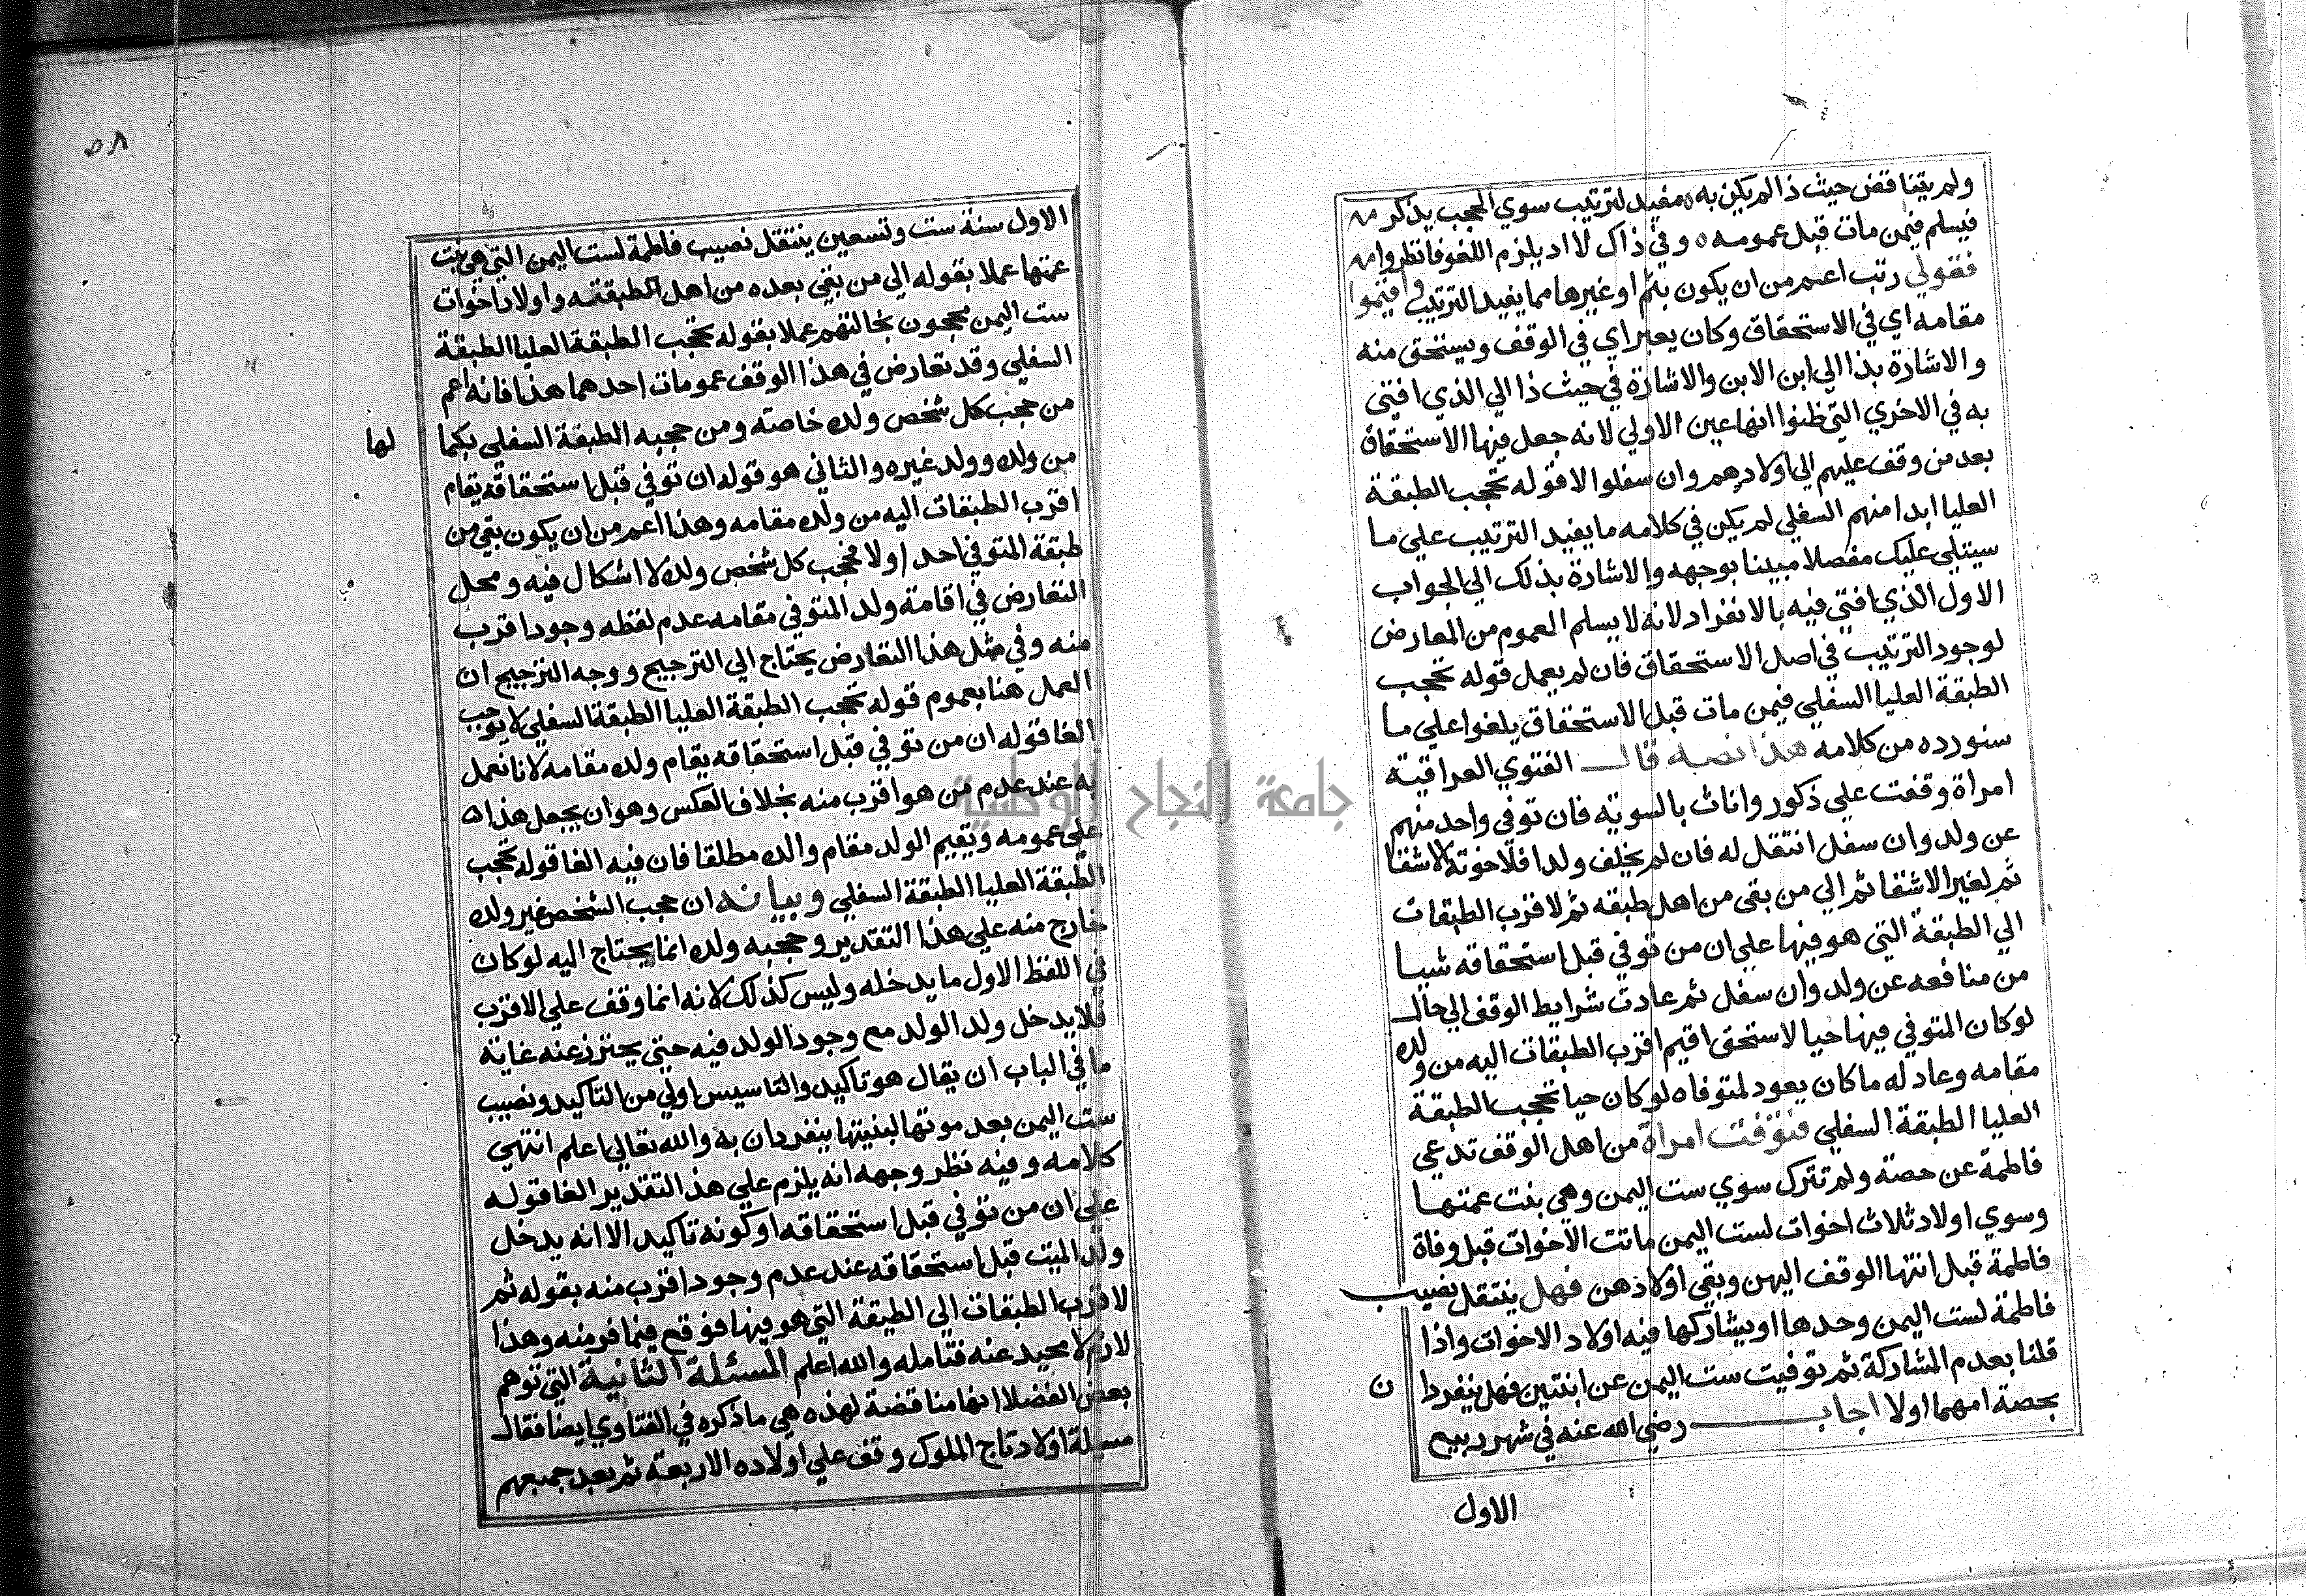 ولم يتناقض حيث ذا لم يكن به ه مفيد لترتيب سوي الحجب يذكر
فيسلم فيمن مات قبل عمومه ه وفي ذاك لا اذ يلزم اللغو فانظروا
فقولي رتب اعم من ان يكون بثم او غيرها مما يفيد الترتيب واقيموا
مقامه اي في الاستحقاق وكان يعبر اي في الوقف ويستحق منه
والاشارة بذا الي ابن الابن والاشارة في حيث ذا الي الذي افتي
به في الاخري التي ظنوا انها عين الاولي لانه جعل فيها الاستحقاق
بعد من وقف عليهم الي اولادهم وان سفلوا الا قوله تحجب الطبقة
العليا ابدا منهم السفلي لم يكن في كلامه ما يفيد الترتيب علي ما
سيتلي عليك مفصلا مبينا بوجهه والاشارة بذلك الي الجواب
الاول الذي افتي فيه بالانفراد لانه لا يسلم العموم من المعارض
لوجود الترتيب في اصل الاستحقاق فان لم يعمل قوله تحجب
الطبقة العليا السفلي فيمن مات قبل الاستحقاق يلغوا علي ما
سنورده من كلامه هذا نصه قال الفتوي العراقية
امراة وقفت علي ذكور واناث بالسوية فان توفي واحد منهم
عن ولد وان سفل انتقل له فان لم يخلف ولدا فلاخوته الاشقا
ثم لغير الاشقا ثم الي من بقي من اهل طبقه ثم لاقرب الطبقات
الي الطبقة التي هو فيها علي ان من توفي قبل استحقاقه شيا
من منافعه عن ولد وان سفل ثم عادت شرايط الوقف الي حال
لو كان المتوفي فيها حيا لاستحق اقيم اقرب الطبقات اليه من ولده
مقامه وعاد له ما كان يعود لمتوفاه لو كان حيا تحجب الطبقة
العليا الطبقة السفلي فتوفت امراة من اهل الوقف تدعي
فاطمة عن حصة ولم تترك سوي ست اليمن وهي بنت عمتها
وسوي اولاد ثلاث اخوات لست اليمن ماتت الاخوات قبل وفاة
فاطمة قبل انتها الوقف اليهن وبقي اولادهن فهل ينتقل نصيب
فاطمة لست اليمن وحدها او يشاركها فيه اولاد الاخوات واذا
قلنا بعدم المشاركة ثم توفيت ست اليمن عن ابنتين فهل ينفردا ن
بحصة امهما اولا اجاب رضي الله عنه في شهر ربيع
الاول
٥٨
الاول سنة ست وتسعين ينتقل نصيب فاطمة لست اليمن التي هي بنت
عمتها عملا بقوله الي من بقي بعده من اهل الطبقة واولاد اخوات
ست اليمن محجبون بخالتهم عملا بقوله تحجب الطبقة العليا الطبقة
السفلي وقد تعارض في هذا الوقف عمومات احدهما هذا فانه اعم
من حجب كل شخص ولده خاصته ومن حجبه الطبقة السفلي بكما لها
من ولده وولد غيره والثاني هو قوله ان توفي قبل استحقاقه يقام
اقرب الطبقات اليه من ولده مقامه وهذا اعم من ان يكون بقي من
طبقة المتوفي احد اولا فحجب كل شخص ولده لا اشكال فيه ومحل
التعارض في اقامة ولد المتوفي مقامه عدم لفظه وجود اقرب
منه وفي مثل هذا التعارض يحتاج الي الترجيح ووجه الترجيح ان
العمل هنا بعموم قوله تحجب الطبقة العليا الطبقة السفلي لا يوجب
الغا قوله ان من توفي قبل استحقاقه يقام ولده مقامه لانا نعمل
به عند عدم من هو اقرب منه بخلاف العكس وهو ان يجعل هذا ه
علي عمومه ويقيم الولد مقام والده مطلقا فان فيه الغا قوله تحجب
الطبقة العليا الطبقة السفلي وبيانه ان حجب الشخص غير ولده
خارج منه علي هذا التقدير وحجبه ولده انما يحتاج اليه لو كان
في اللفظ الاول ما يدخله وليس كذلك لانه انما وقف علي الاقرب
فلا يدخل ولد الولد مع وجود الولد فيه حتي يحترز عنه غاية
ما في الباب ان يقال هو تاكيد والتاسيس اولي من التاكيد ونصيب
ست اليمن بعد موتها لبنيتها ينفردان به والله تعالي اعلم انتهي
كلامه وفيه نظر وجهه انه يلزم علي هذ التقدير الغا قوله
علي ان من توفي قبل استحقاقه او كونه تاكيد الا انه يدخل
ولد الميت قبل استحقاقه عند عدم وجود اقرب منه بقوله ثم
لاقرب الطبقات الي الطبقة التي هو فيها فوقع فيما فر منه وهذا
لازم لا محيد عنه فتامله والله اعلم المسئلة الثانية التي توهم
بعض الفضلا انها مناقضة لهذه هي ما ذكره في الفتاوي ايضا فقال
مسيلة اولاد تاج الملوك وقف علي اولاده الاربعة ثم بعد جميعهم